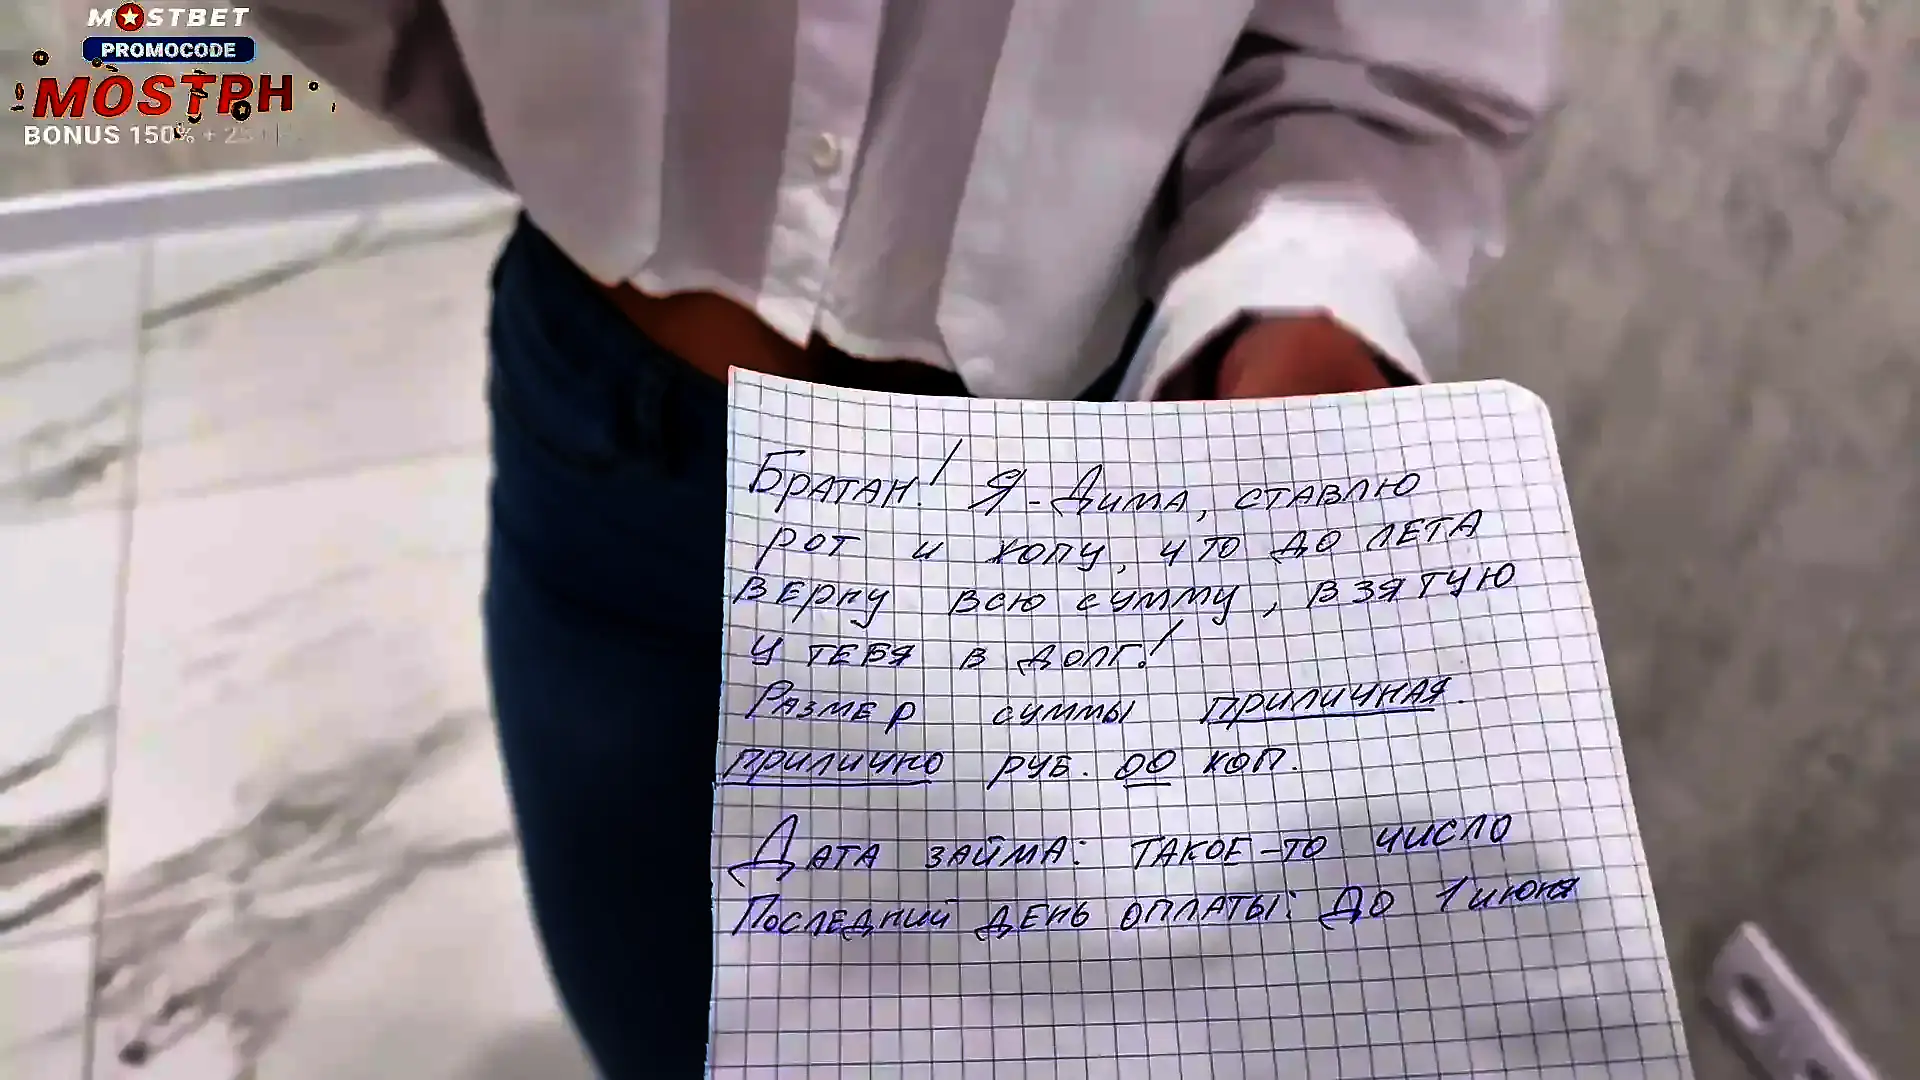 MOSTBET
PROMOCODE
MOSTPH
BONUS 150% + 25
Братан! Я - Дима, ставлю
рот и жопу, что до лета
верну всю сумму, взятую
у тебя в долг!
Размер суммы приличная.
прилично руб. 00 коп.
Дата займа: такое-то число
Последний день оплаты: до 1 июня